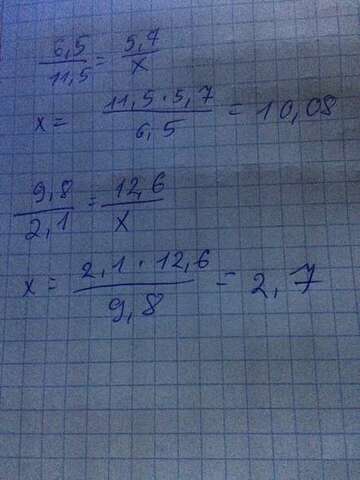 6,5/11,5 = 5,7/x
x = 11,5 · 5,7/6,5 = 10,08
9,8/2,1 = 12,6/x
x = 2,1 · 12,6/9,8 = 2,7